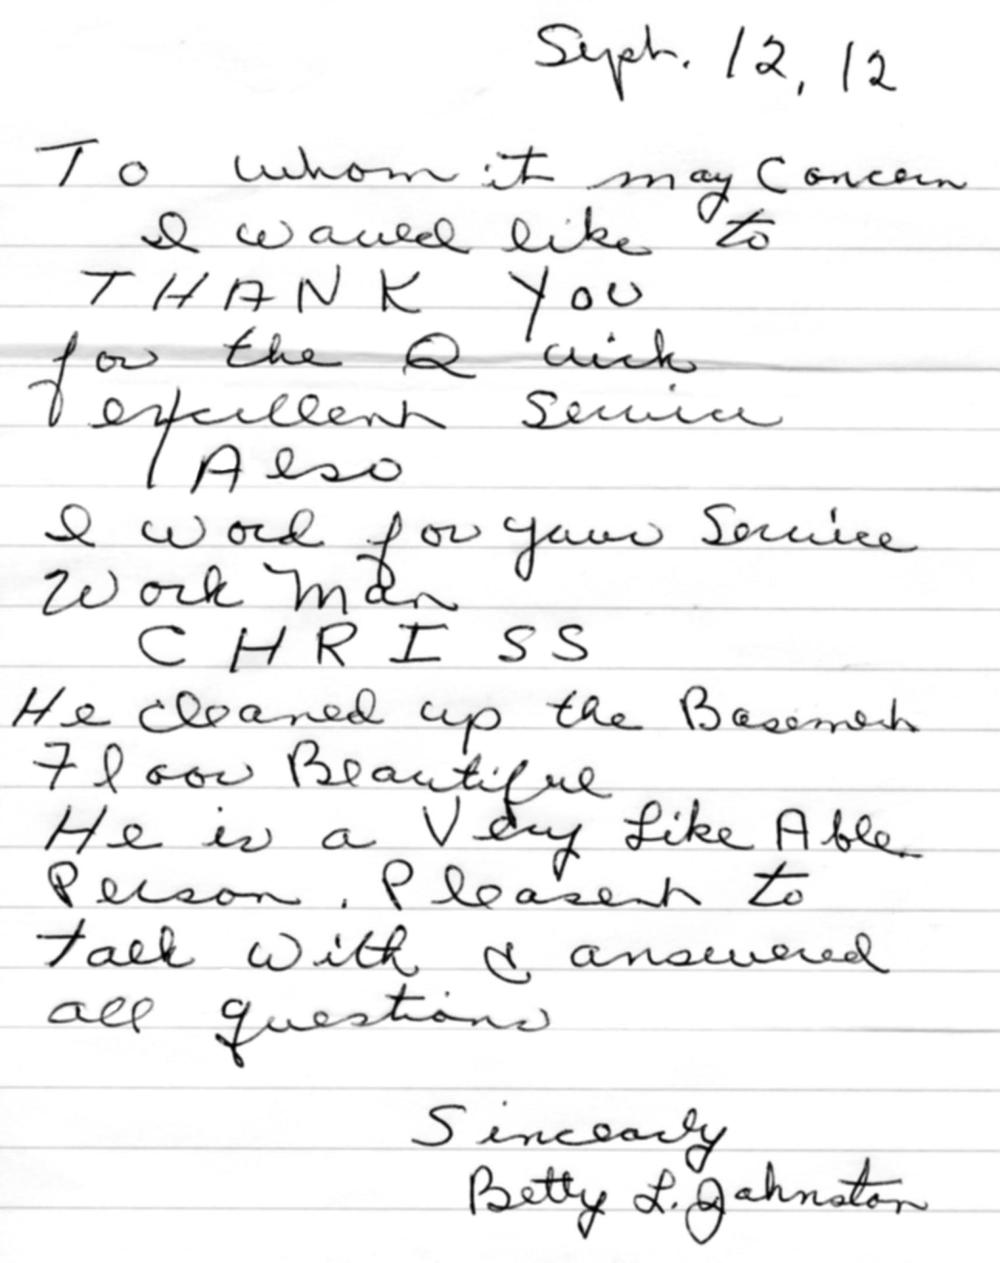 Sept. 12, 12
To whom it may Concern
I would like to
THANK YOU
for the Quick
excellent Service
Also
I word for your Service
Work Man
CHRISS
He cleaned up the Basement
Floor Beautiful
He is a Very Like Able
Person. Pleasent to
talk with & answered
all questions
Sincearly
Betty L. Johnston